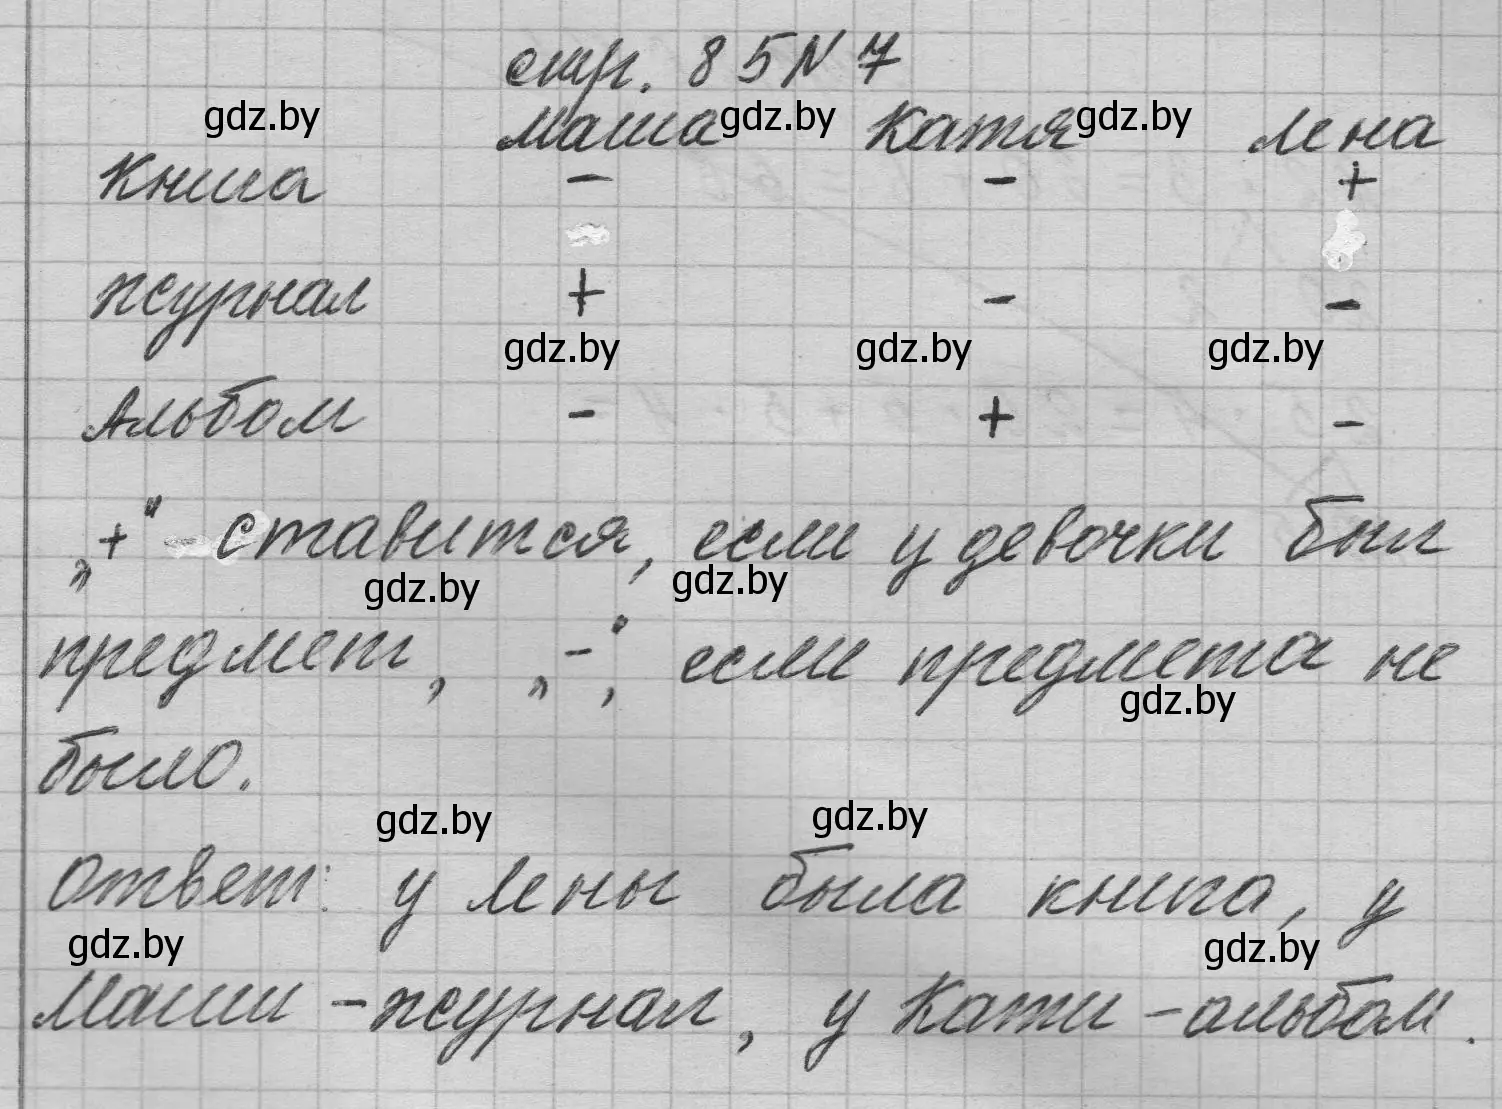 стр. 85 N 7
gdz.by Маша gdz.by Катя gdz.by Лена
Книга - - +
журнал + - -
gdz.by gdz.by gdz.by
Альбом - + -
„+“ - ставится, если у девочки был
gdz.by gdz.by
предмет, „-“, если предмета не
gdz.by
было.
gdz.by gdz.by
Ответ: у Лены была книга, у
gdz.by gdz.by
Маши - журнал, у Кати - альбом.